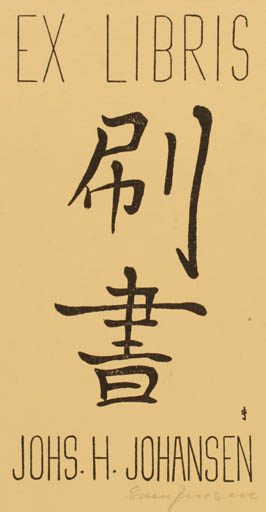 EX LIBRIS
刷
書
JOHS. H. JOHANSEN